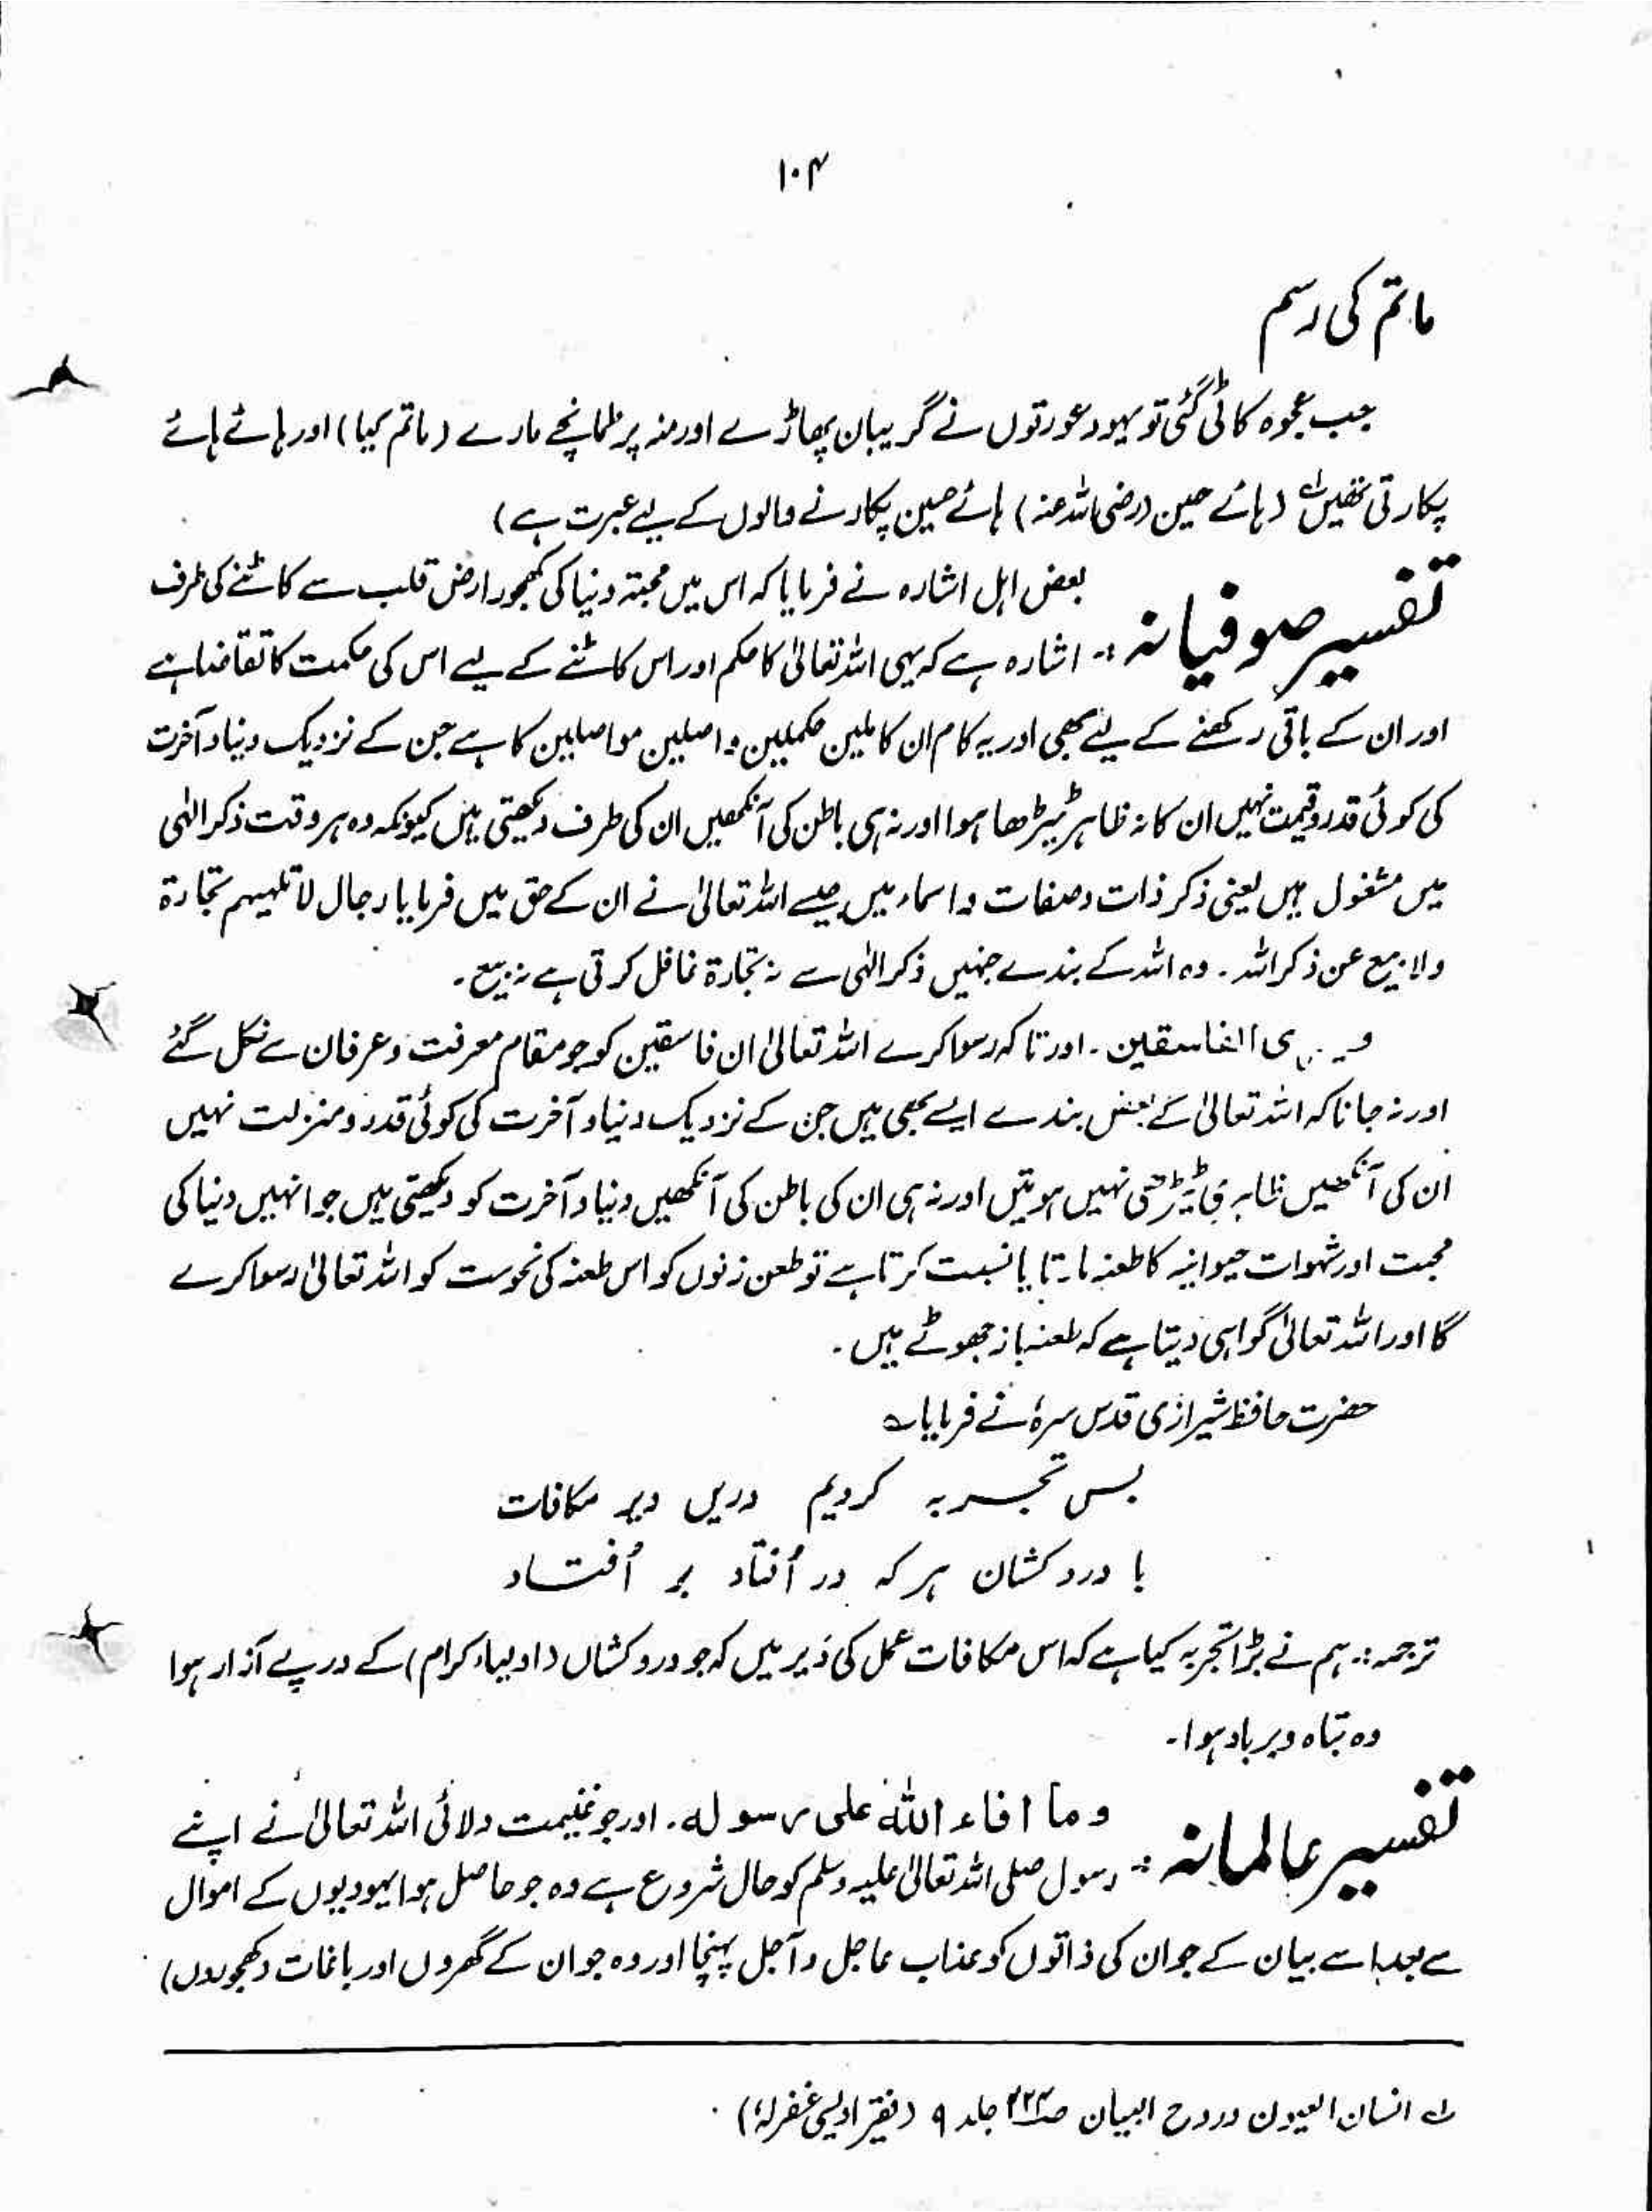 ۱۰۴
ماتم کی رسم
جب عجوہ کاٹی گئی تو یہود عورتوں نے گریبان پھاڑے اور منہ پر طمانچے مارے (ماتم کیا) اور ہائے ہائے
پکارتی تھیں لہ (ہائے حسین (رضی اللہ عنہ) ہائے حسین پکارنے والوں کے لیے عبرت ہے)
تفسیر صوفیانہ :- بعض اہل اشارہ نے فرمایا کہ اس میں محبتہ دنیا کی کھجور ارض قلب سے کاٹنے کی طرف
اشارہ ہے کہ یہی اللہ تعالیٰ کا حکم اور اس کاٹنے کے لیے اس کی حکمت کا تقاضا ہے
اور ان کے باقی رکھنے کے لیے بھی اور یہ کام ان کاملین مکملین واصلین مواصلین کا ہے جن کے نزدیک دنیا و آخرت
کی کوئی قدر و قیمت نہیں ان کا نہ ظاہر ٹیڑھا ہوا اور نہ ہی باطن کی آنکھیں ان کی طرف دیکھتی ہیں کیونکہ وہ ہر وقت ذکر الٰہی
میں مشغول ہیں یعنی ذکر ذات و صفات و اسماء میں جیسے اللہ تعالیٰ نے ان کے حق میں فرمایا رجال لا تلہیہم تجارۃ
ولا بیع عن ذکر اللہ ۔ وہ اللہ کے بندے جنہیں ذکر الٰہی سے نہ تجارۃ غافل کرتی ہے نہ بیع ۔
ی الفاسقین ۔ اور تاکہ رسوا کرے اللہ تعالیٰ ان فاسقین کو جو مقام معرفت و عرفان سے نکل گئے
اور نہ جانا کہ اللہ تعالیٰ کے بعض بندے ایسے بھی ہیں جن کے نزدیک دنیا و آخرت کی کوئی قدر و منزلت نہیں
ان کی آنکھیں ظاہری ٹیڑھی نہیں ہوتیں اور نہ ہی ان کی باطن کی آنکھیں دنیا و آخرت کو دیکھتی ہیں جو انہیں دنیا کی
محبت اور شہوات حیوانیہ کا طعنہ مارتا یا نسبت کرتا ہے تو طعن زنوں کو اس طعنہ کی نحوست کو اللہ تعالیٰ رسوا کرے
گا اور اللہ تعالیٰ گواہی دیتا ہے کہ طعنہ باز جھوٹے ہیں ۔
حضرت حافظ شیرازی قدس سرہٗ نے فرمایا ؎
بس تجربہ کردیم دریں دیر مکافات
با درد کشان ہر کہ در اُفتاد بر اُفتاد
ترجمہ :۔ ہم نے بڑا تجربہ کیا ہے کہ اس مکافات عمل کی دَیر میں کہ جو درد کشاں (اولیاء کرام) کے درپے آزار ہوا
وہ تباہ و برباد ہوا ۔
تفسیر عالمانہ :- وما افاء اللہ علی رسولہ ۔ اور جو غنیمت دلائی اللہ تعالیٰ نے اپنے
رسول صلی اللہ تعالیٰ علیہ وسلم کو حال شروع ہے وہ جو حاصل ہوا یہودیوں کے اموال
سے بعد اسے بیان کے جو ان کی ذاتوں کو عذاب عاجل و آجل پہنچا اور وہ جو ان کے گھروں اور باغات (کھجوروں)
لہ انسان العیون و روح البیان ص جلد ۹ (فقیر اویسی غفرلہٗ) ۔